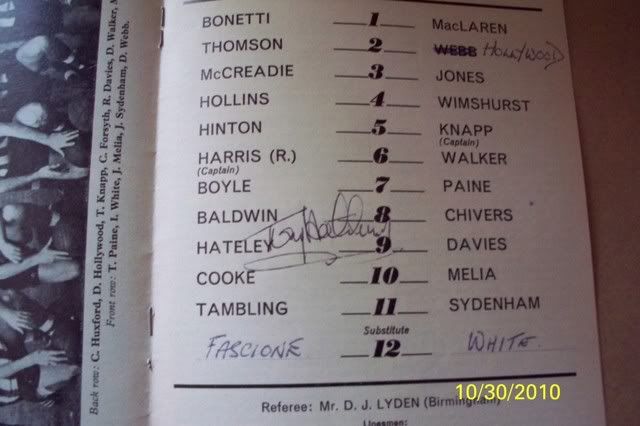 BONETTI 1 MacLAREN
THOMSON 2 WEBB HOLLYWOOD
McCREADIE 3 JONES
HOLLINS 4 WIMSHURST
HINTON 5 KNAPP
(Captain)
HARRIS (R.) 6 WALKER
(Captain)
BOYLE 7 PAINE
BALDWIN 8 CHIVERS
HATELEY 9 DAVIES
COOKE 10 MELIA
TAMBLING 11 SYDENHAM
Substitute
FASCIONE 12 WHITE.
Referee: Mr. D. J. LYDEN (Birmingham)
Linesmen:
Back row: C. Huxford, D. Hollywood, T. Knapp, C. Forsyth, R. Davies, D. Walker,
Front row: T. Paine, I. White, J. Melia, J. Sydenham, D. Webb.
10/30/2010